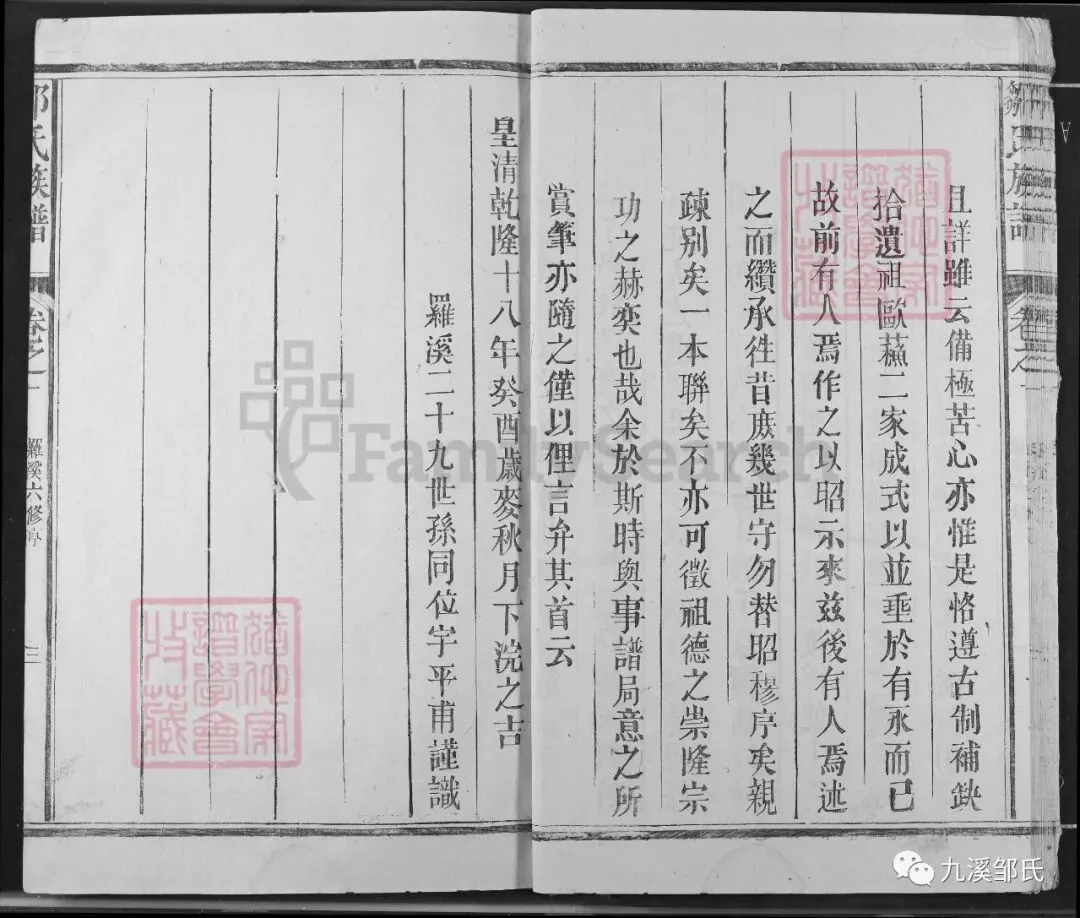 鄒氏族譜
卷之一
且詳雖云備極苦心亦惟是恪遵古制補鈌
拾遺祖歐蘓二家成式以並垂於有永而已
故前有人焉作之以昭示來兹後有人焉述
之而纘承徃昔庻幾世守勿替昭穆序矣親
疎别矣一本聯矣不亦可徵祖德之崇隆宗
功之赫奕也哉余於斯時與事譜局意之所
賞筆亦隨之僅以俚言弁其首云
皇清乾隆十八年癸酉歲麥秋月下浣之吉
羅溪二十九世孫同位字平甫謹識
鄒氏族譜
卷之一
羅溪六修序
FamilySearch
九溪邹氏